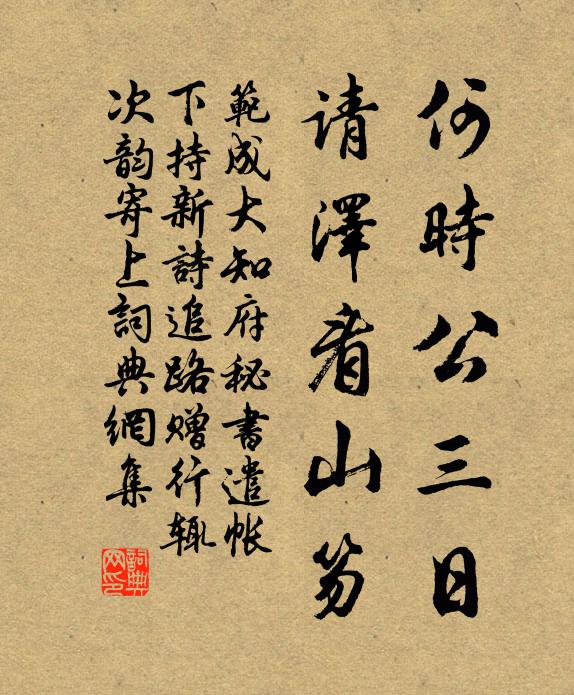 何時公三日
请澤看山笏
範成大知府秘書遣帳
下持新詩追路赠行辄
次韵寄上詞典網集
詞典
网印